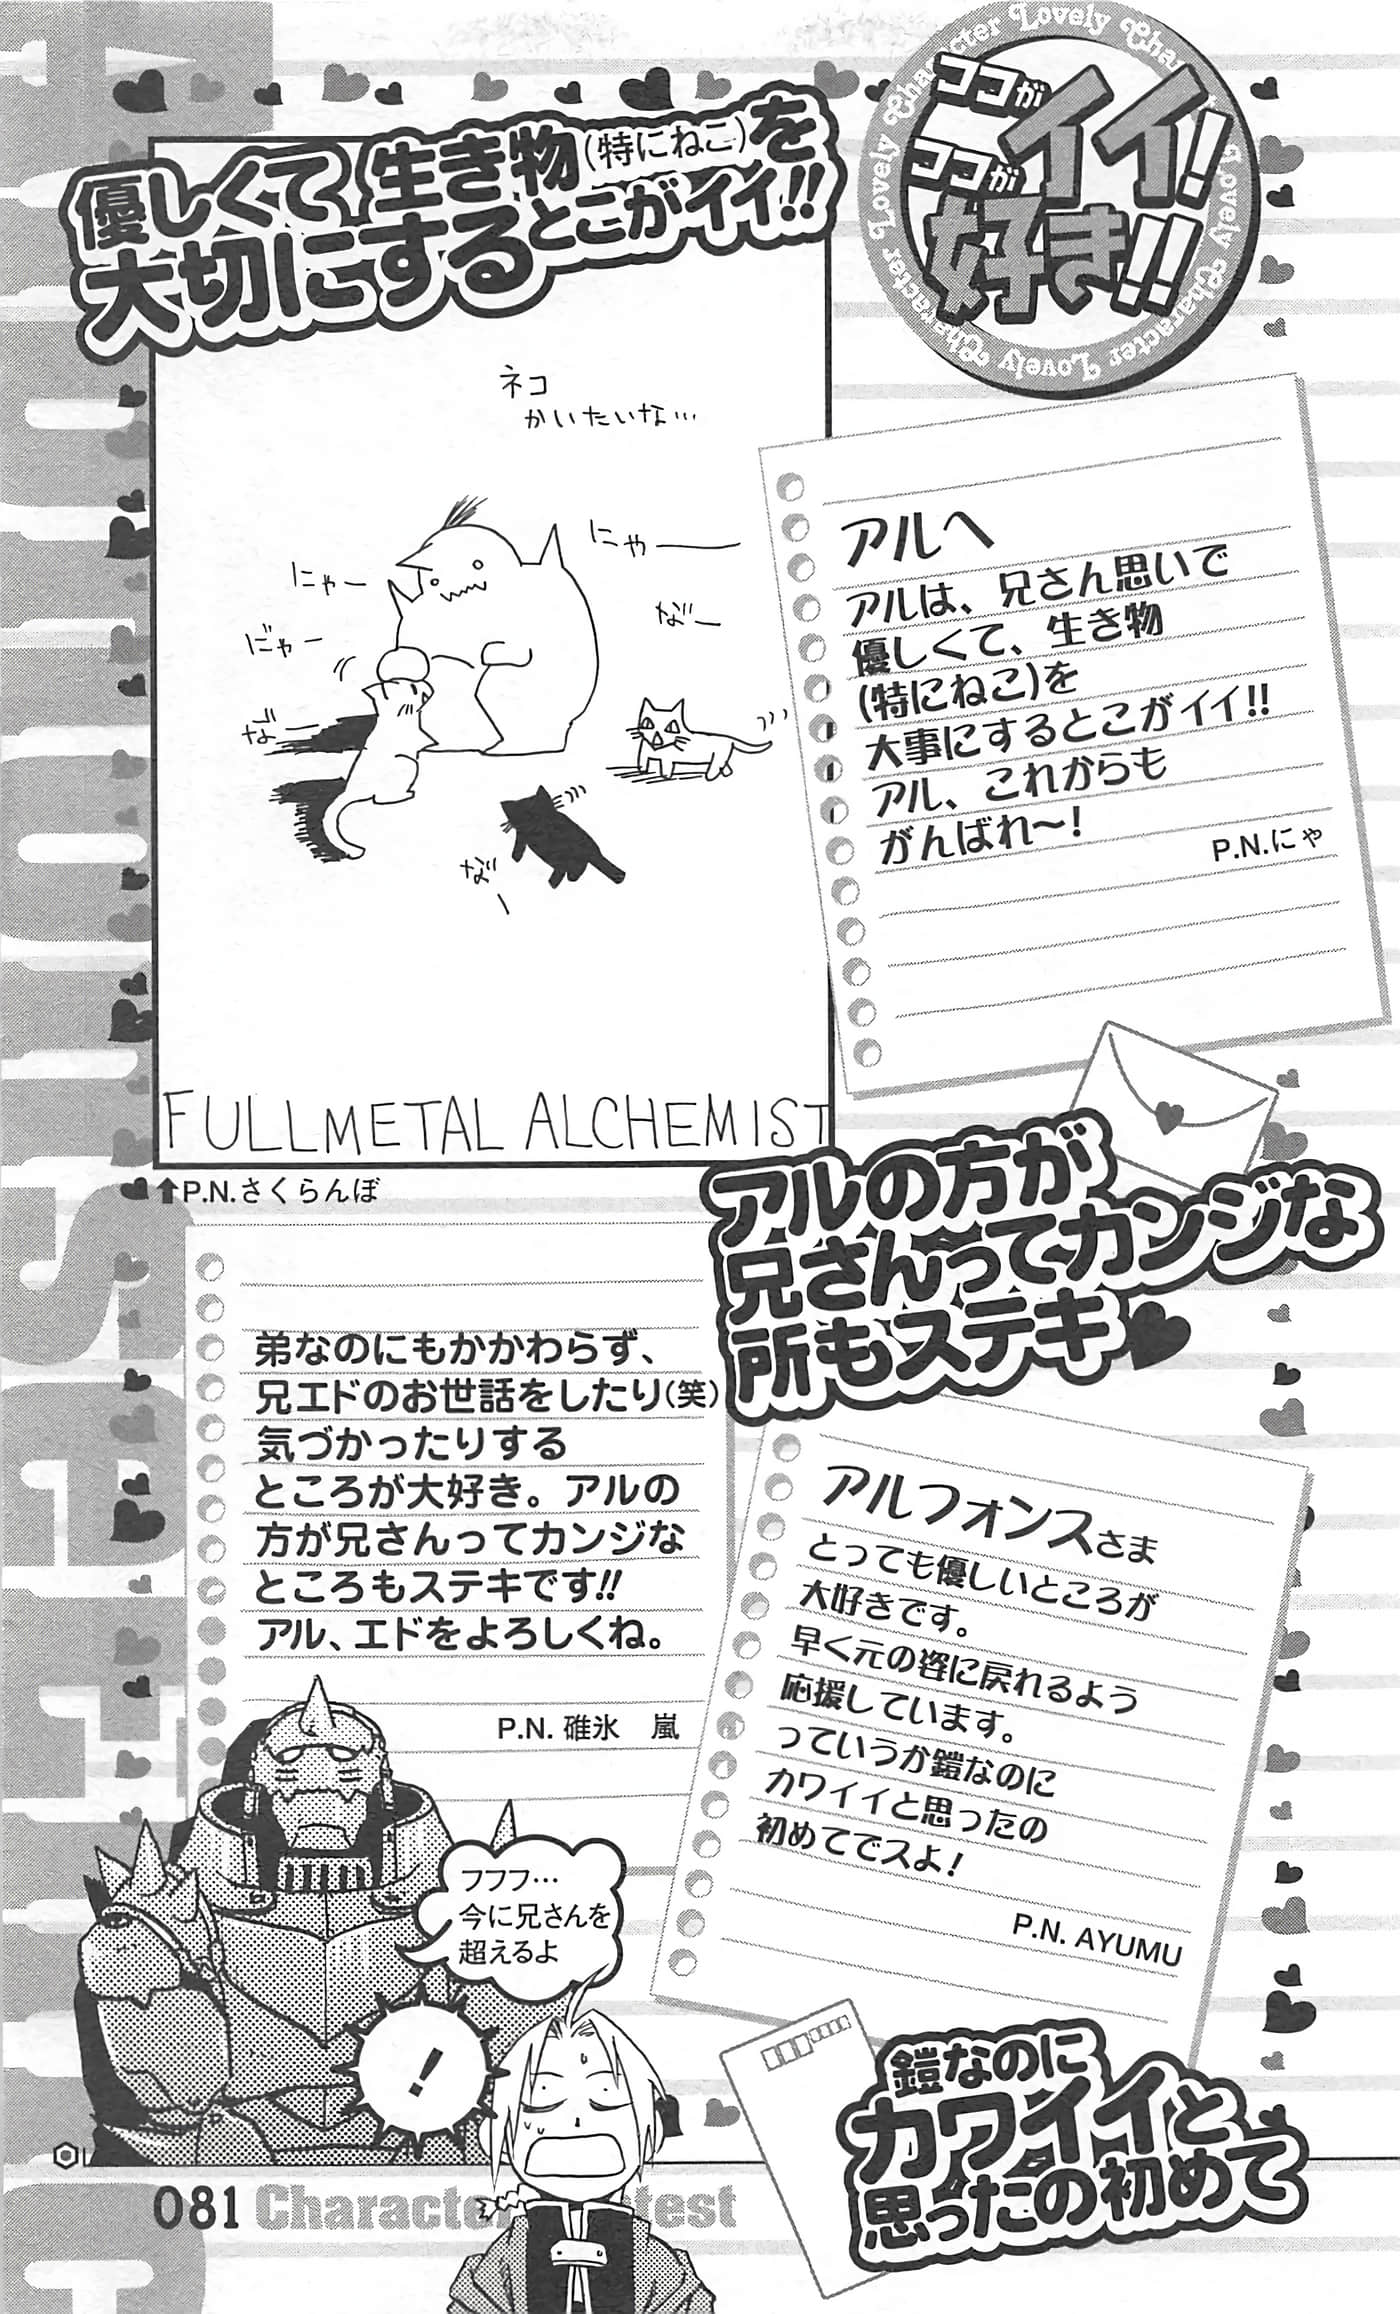 ココがイイ!
ココが好き!!
Lovely Character Lovely Character Lovely Character Lovely Character
優しくて 生き物(特にねこ)を
大切にするとこがイイ!!
ネコ
かいたいな…
にゃー
にゃー
にゃー
なー
なー
なー
FULLMETAL ALCHEMIST
↑P.N.さくらんぼ
アルへ
アルは、兄さん思いで
優しくて、生き物
(特にねこ)を
大事にするとこがイイ!!
アル、これからも
がんばれ〜!
P.N.にゃ
アルの方が
兄さんってカンジな
所もステキ♥
弟なのにもかかわらず、
兄エドのお世話をしたり(笑)
気づかったりする
ところが大好き。アルの
方が兄さんってカンジな
ところもステキです!!
アル、エドをよろしくね。
P.N. 碓氷 嵐
アルフォンスさま
とっても優しいところが
大好きです。
早く元の姿に戻れるよう
応援しています。
っていうか鎧なのに
カワイイと思ったの
初めてでスよ!
P.N. AYUMU
フフフ…
今に兄さんを
超えるよ
!
鎧なのに
カワイイと
思ったの初めて
081